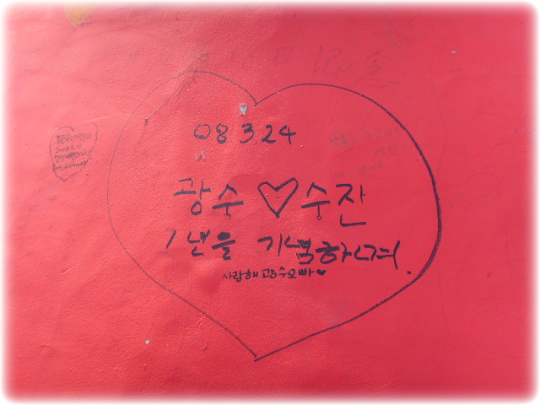 08 3.24
광수 ♡ 수잔
1년을 기념하며.
사랑해 광수오빠♥